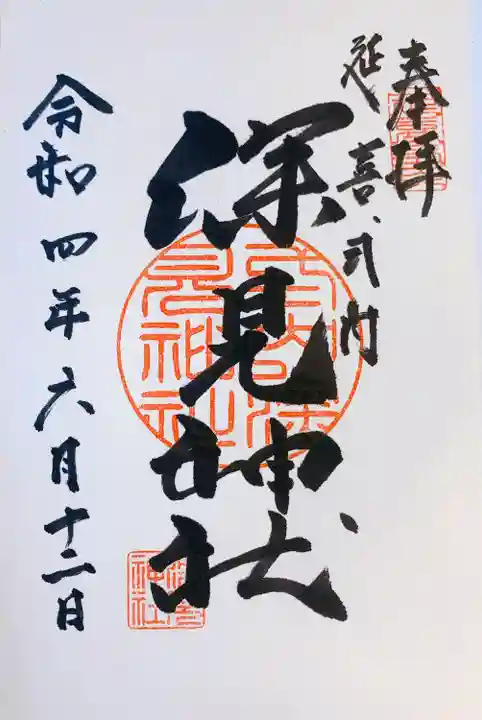 奉拝
延喜式内
深見神社
令和四年六月十二日